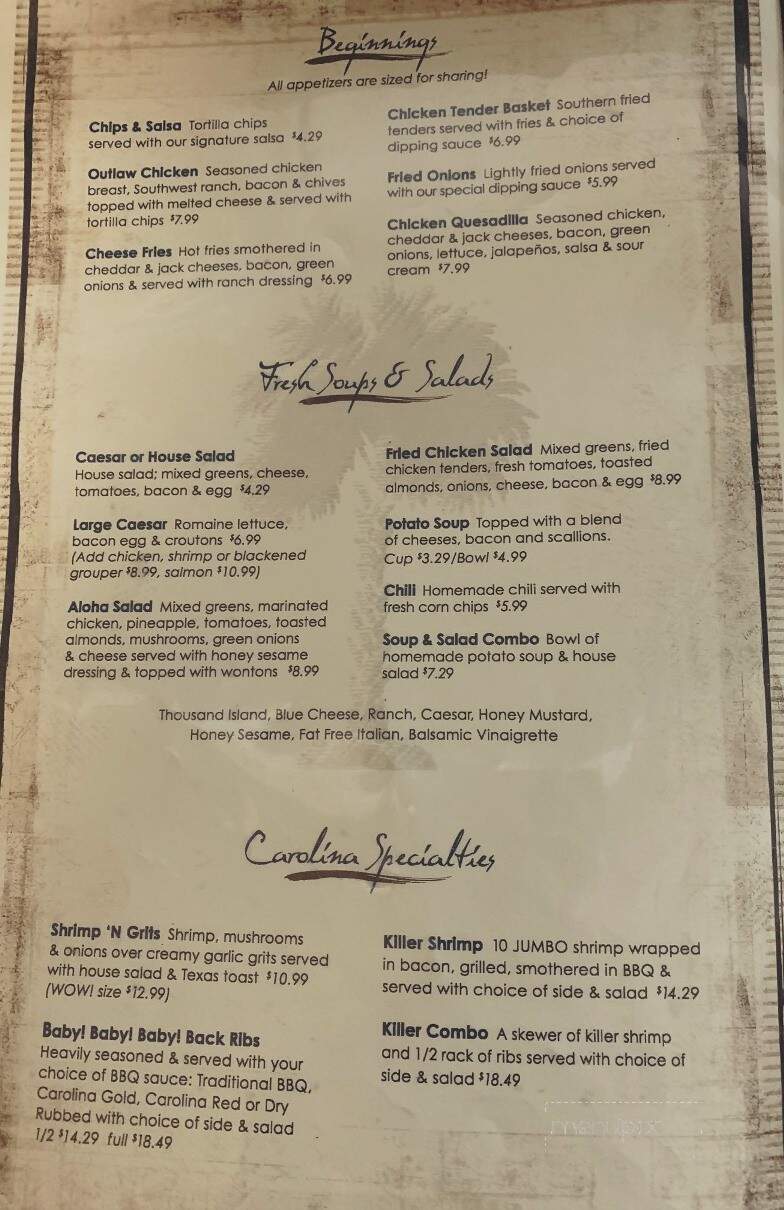 Beginnings
All appetizers are sized for sharing!
Chips & Salsa Tortilla chips
served with our signature salsa $4.29
Outlaw Chicken Seasoned chicken
breast, Southwest ranch, bacon & chives
topped with melted cheese & served with
tortilla chips $7.99
Cheese Fries Hot fries smothered in
cheddar & jack cheeses, bacon, green
onions & served with ranch dressing $6.99
Chicken Tender Basket Southern fried
tenders served with fries & choice of
dipping sauce $6.99
Fried Onions Lightly fried onions served
with our special dipping sauce $5.99
Chicken Quesadilla Seasoned chicken,
cheddar & jack cheeses, bacon, green
onions, lettuce, jalapeños, salsa & sour
cream $7.99
Fresh Soups & Salads
Caesar or House Salad
House salad; mixed greens, cheese,
tomatoes, bacon & egg $4.29
Large Caesar Romaine lettuce,
bacon egg & croutons $6.99
(Add chicken, shrimp or blackened
grouper $8.99, salmon $10.99)
Aloha Salad Mixed greens, marinated
chicken, pineapple, tomatoes, toasted
almonds, mushrooms, green onions
& cheese served with honey sesame
dressing & topped with wontons $8.99
Fried Chicken Salad Mixed greens, fried
chicken tenders, fresh tomatoes, toasted
almonds, onions, cheese, bacon & egg $8.99
Potato Soup Topped with a blend
of cheeses, bacon and scallions.
Cup $3.29/Bowl $4.99
Chili Homemade chili served with
fresh corn chips $5.99
Soup & Salad Combo Bowl of
homemade potato soup & house
salad $7.29
Thousand Island, Blue Cheese, Ranch, Caesar, Honey Mustard,
Honey Sesame, Fat Free Italian, Balsamic Vinaigrette
Carolina Specialties
Shrimp 'N Grits Shrimp, mushrooms
& onions over creamy garlic grits served
with house salad & Texas toast $10.99
(WOW! size $12.99)
Baby! Baby! Baby! Back Ribs
Heavily seasoned & served with your
choice of BBQ sauce: Traditional BBQ,
Carolina Gold, Carolina Red or Dry
Rubbed with choice of side & salad
1/2 $14.29 full $18.49
Killer Shrimp 10 JUMBO shrimp wrapped
in bacon, grilled, smothered in BBQ &
served with choice of side & salad $14.29
Killer Combo A skewer of killer shrimp
and 1/2 rack of ribs served with choice of
side & salad $18.49
menupix